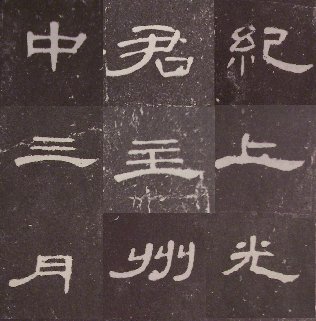 紀上光
君王州
中三月